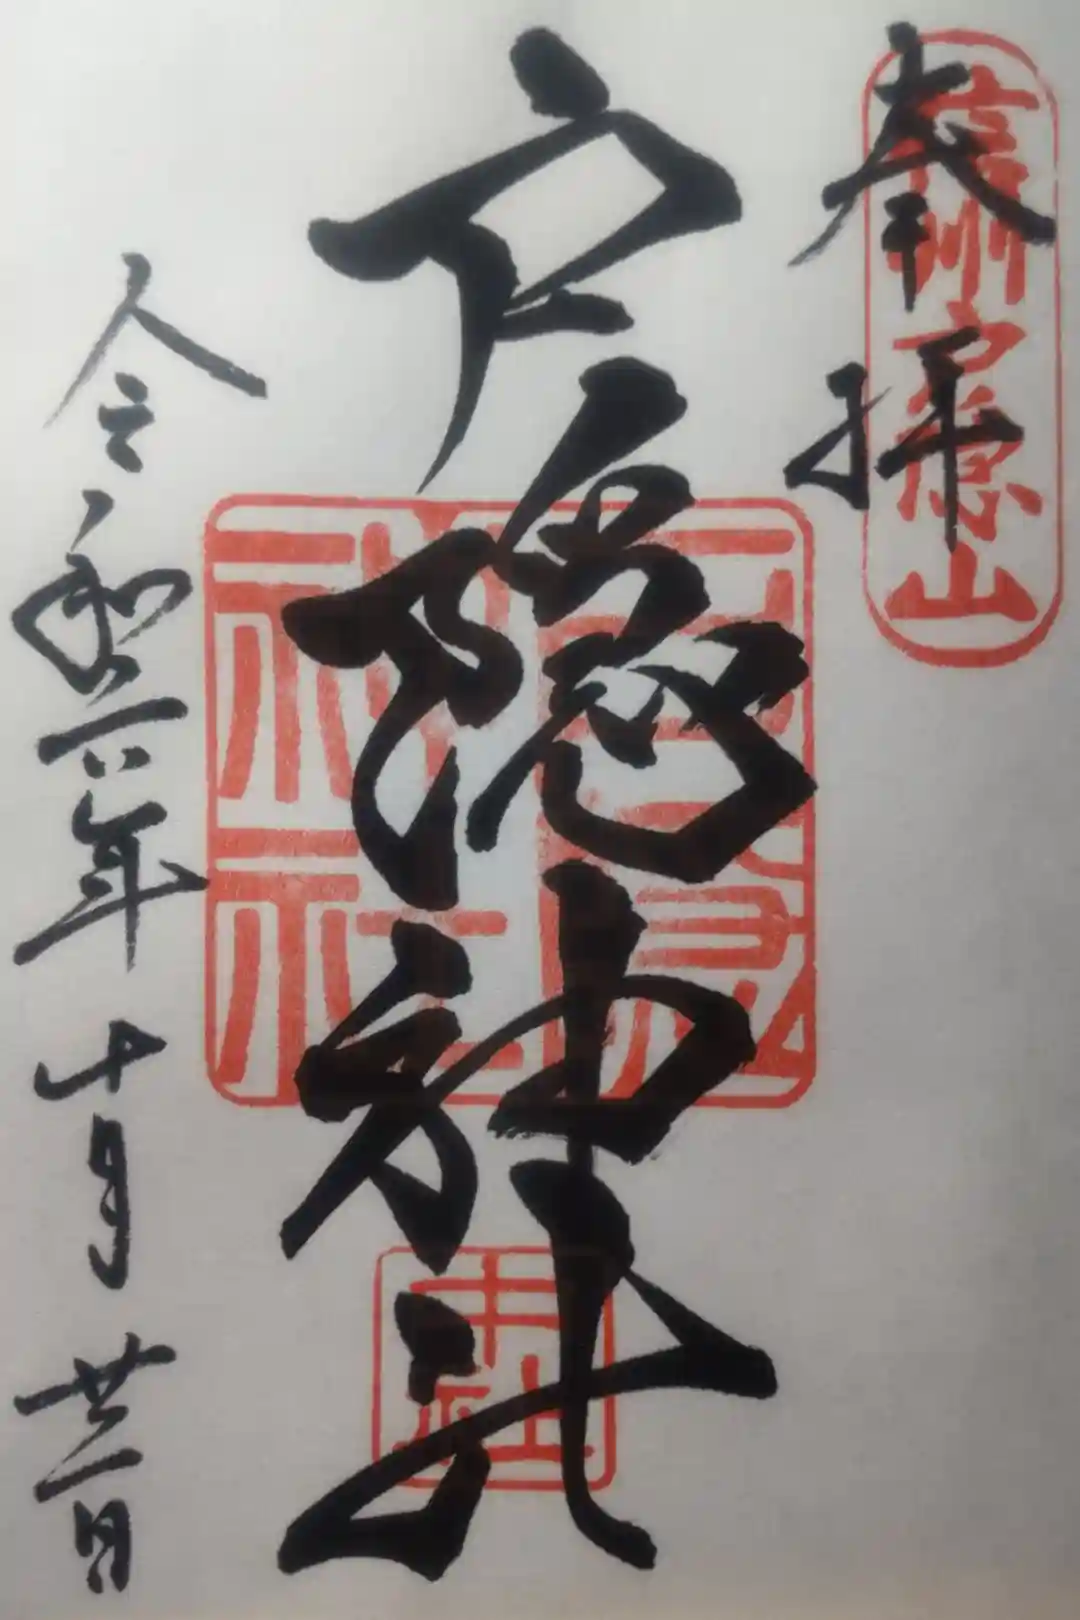 奉拝
信州戸隠山
戸隠神社
戸隠神社
中社
令和六年十月廿二日